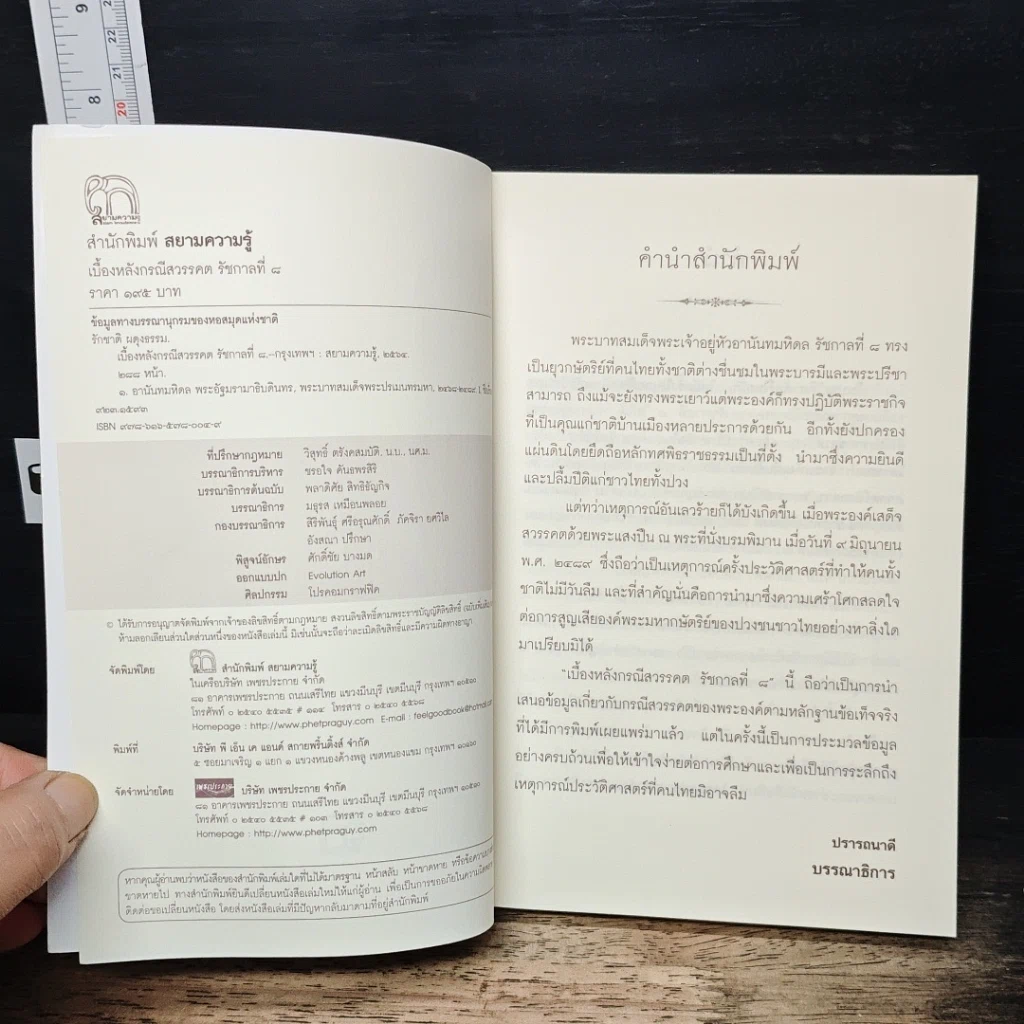 9
22
21
8
20
สยามความรู้
สำนักพิมพ์ สยามความรู้
เบื้องหลังกรณีสวรรคต รัชกาลที่ ๘
ราคา ๑๙๕ บาท
ข้อมูลทางบรรณานุกรมของหอสมุดแห่งชาติ
รักชาติ ผดุงธรรม.
เบื้องหลังกรณีสวรรคต รัชกาลที่ ๘.--กรุงเทพฯ : สยามความรู้, ๒๕๖๔.
๒๘๘ หน้า.
๑. อานันทมหิดล พระอัฐมรามาธิบดินทร, พระบาทสมเด็จพระปรเมนทรมหา, ๒๔๖๘-๒๔๘๙
๙๒๓.๑๕๙๓
ISBN ๙๗๘-๖๑๖-๕๗๘-๐๐๔-๙
ที่ปรึกษากฎหมาย วิสุทธิ์ ตรังคสมบัติ, น.บ., นศ.ม.
บรรณาธิการบริหาร ชรอใจ คันธพรสิริ
บรรณาธิการต้นฉบับ พลาดิศัย สิทธิธัญกิจ
บรรณาธิการ มธุรส เหมือนพลอย
กองบรรณาธิการ สิริพันธุ์ ศรีอรุณศักดิ์ ภัคจิรา ยศวิไล
อังสณา ปรึกษา
พิสูจน์อักษร ศักดิ์ชัย บางมด
ออกแบบปก Evolution Art
ศิลปกรรม โปรคอมกราฟฟิค
© ได้รับการอนุญาตจัดพิมพ์จากเจ้าของลิขสิทธิ์ตามกฎหมาย สงวนลิขสิทธิ์ตามพระราชบัญญัติลิขสิทธิ์
ห้ามลอกเลียนส่วนใดส่วนหนึ่งของหนังสือเล่มนี้ มิเช่นนั้นจะถือว่าละเมิดลิขสิทธิ์และมีความผิดทางอาญา
จัดพิมพ์โดย สำนักพิมพ์ สยามความรู้
ในเครือบริษัท เพชรประกาย จำกัด
๘๑ อาคารเพชรประกาย ถนนเสรีไทย แขวงมีนบุรี เขตมีนบุรี กรุงเทพฯ ๑๐๕๑๐
โทรศัพท์ ๐ ๒๕๔๐ ๕๕๓๕ # ๑๑๔ โทรสาร ๐ ๒๕๔๐ ๕๕๖๘
Homepage : http://www.phetpraguy.com E-mail :
พิมพ์ที่ บริษัท พี เอ็น เค แอนด์ สกายพริ้นติ้งส์ จำกัด
๕ ซอยมาเจริญ ๑ แยก ๑ แขวงหนองค้างพลู เขตหนองแขม กรุงเทพฯ ๑๐๑๖๐
จัดจำหน่ายโดย เพชรประกาย บริษัท เพชรประกาย จำกัด
๘๑ อาคารเพชรประกาย ถนนเสรีไทย แขวงมีนบุรี เขตมีนบุรี กรุงเทพฯ ๑๐๕๑๐
โทรศัพท์ ๐ ๒๕๔๐ ๕๕๓๕ # ๑๐๓ โทรสาร ๐ ๒๕๔๐ ๕๕๖๘
Homepage : http://www.phetpraguy.com
หากคุณผู้อ่านพบว่าหนังสือของสำนักพิมพ์เล่มใดที่ไม่ได้มาตรฐาน หน้าสลับ หน้าขาดหาย
ขาดหายไป ทางสำนักพิมพ์ยินดีเปลี่ยนหนังสือเล่มใหม่ให้แก่ผู้อ่าน เพื่อเป็นการขออภัยใน
ติดต่อขอเปลี่ยนหนังสือ โดยส่งหนังสือเล่มที่มีปัญหากลับมาตามที่อยู่สำนักพิมพ์
คำนำสำนักพิมพ์
พระบาทสมเด็จพระเจ้าอยู่หัวอานันทมหิดล รัชกาลที่ ๘ ทรง
เป็นยุวกษัตริย์ที่คนไทยทั้งชาติต่างชื่นชมในพระบารมีและพระปรีชา
สามารถ ถึงแม้จะยังทรงพระเยาว์แต่พระองค์ก็ทรงปฏิบัติพระราชกิจ
ที่เป็นคุณแก่ชาติบ้านเมืองหลายประการด้วยกัน อีกทั้งยังปกครอง
แผ่นดินโดยยึดถือหลักทศพิธราชธรรมเป็นที่ตั้ง นำมาซึ่งความยินดี
และปลื้มปีติแก่ชาวไทยทั้งปวง
แต่ทว่าเหตุการณ์อันเลวร้ายก็ได้บังเกิดขึ้น เมื่อพระองค์เสด็จ
สวรรคตด้วยพระแสงปืน ณ พระที่นั่งบรมพิมาน เมื่อวันที่ ๙ มิถุนายน
พ.ศ. ๒๔๘๙ ซึ่งถือว่าเป็นเหตุการณ์ครั้งประวัติศาสตร์ที่ทำให้คนทั้ง
ชาติไม่มีวันลืม และที่สำคัญนั่นคือการนำมาซึ่งความเศร้าโศกสลดใจ
ต่อการสูญเสียองค์พระมหากษัตริย์ของปวงชนชาวไทยอย่างหาสิ่งใด
มาเปรียบมิได้
"เบื้องหลังกรณีสวรรคต รัชกาลที่ ๘" นี้ ถือว่าเป็นการนำ
เสนอข้อมูลเกี่ยวกับกรณีสวรรคตของพระองค์ตามหลักฐานข้อเท็จจริง
ที่ได้มีการพิมพ์เผยแพร่มาแล้ว แต่ในครั้งนี้เป็นการประมวลข้อมูล
อย่างครบถ้วนเพื่อให้เข้าใจง่ายต่อการศึกษาและเพื่อเป็นการระลึกถึง
เหตุการณ์ประวัติศาสตร์ที่คนไทยมิอาจลืม
ปรารถนาดี
บรรณาธิการ